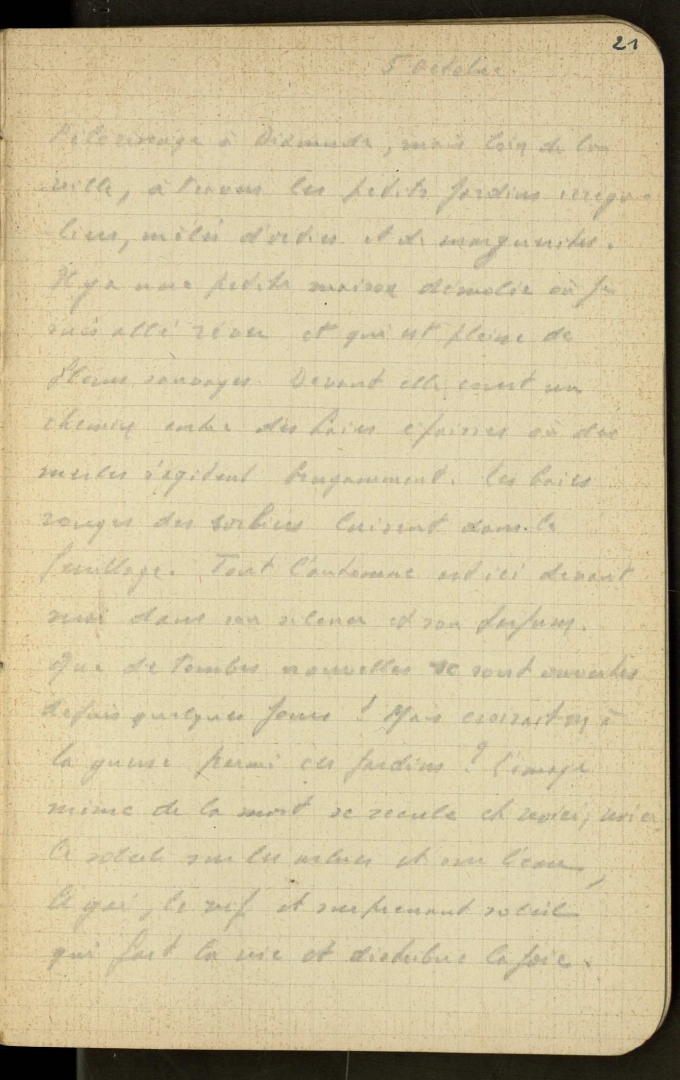 21
5 Octobre
Pélerinage à Dixmude, mais loin de la
ville, à travers les petits jardins irrégu-
liers, mêlés d'orties et de marguerites.
Il y a une petite maison démolie où je
suis allé rêver et qui est pleine de
fleurs sauvages. Devant elle court un
chemin entre des haies épaisses où des
merles s'agitent bruyamment. Les baies
rouges des sorbiers luisent dans le
feuillage. Tout l'automne est ici devant
moi dans son silence et son parfum.
Que de tombes nouvelles se sont ouvertes
depuis quelques jours ! Mais croirait-on à
la guerre parmi ces jardins ? L'image
même de la mort se recule et voici, voici
le soleil sur les arbres et sur l'eau,
le gai, le vif et surprenant soleil
qui fait la vie et distribue la joie.